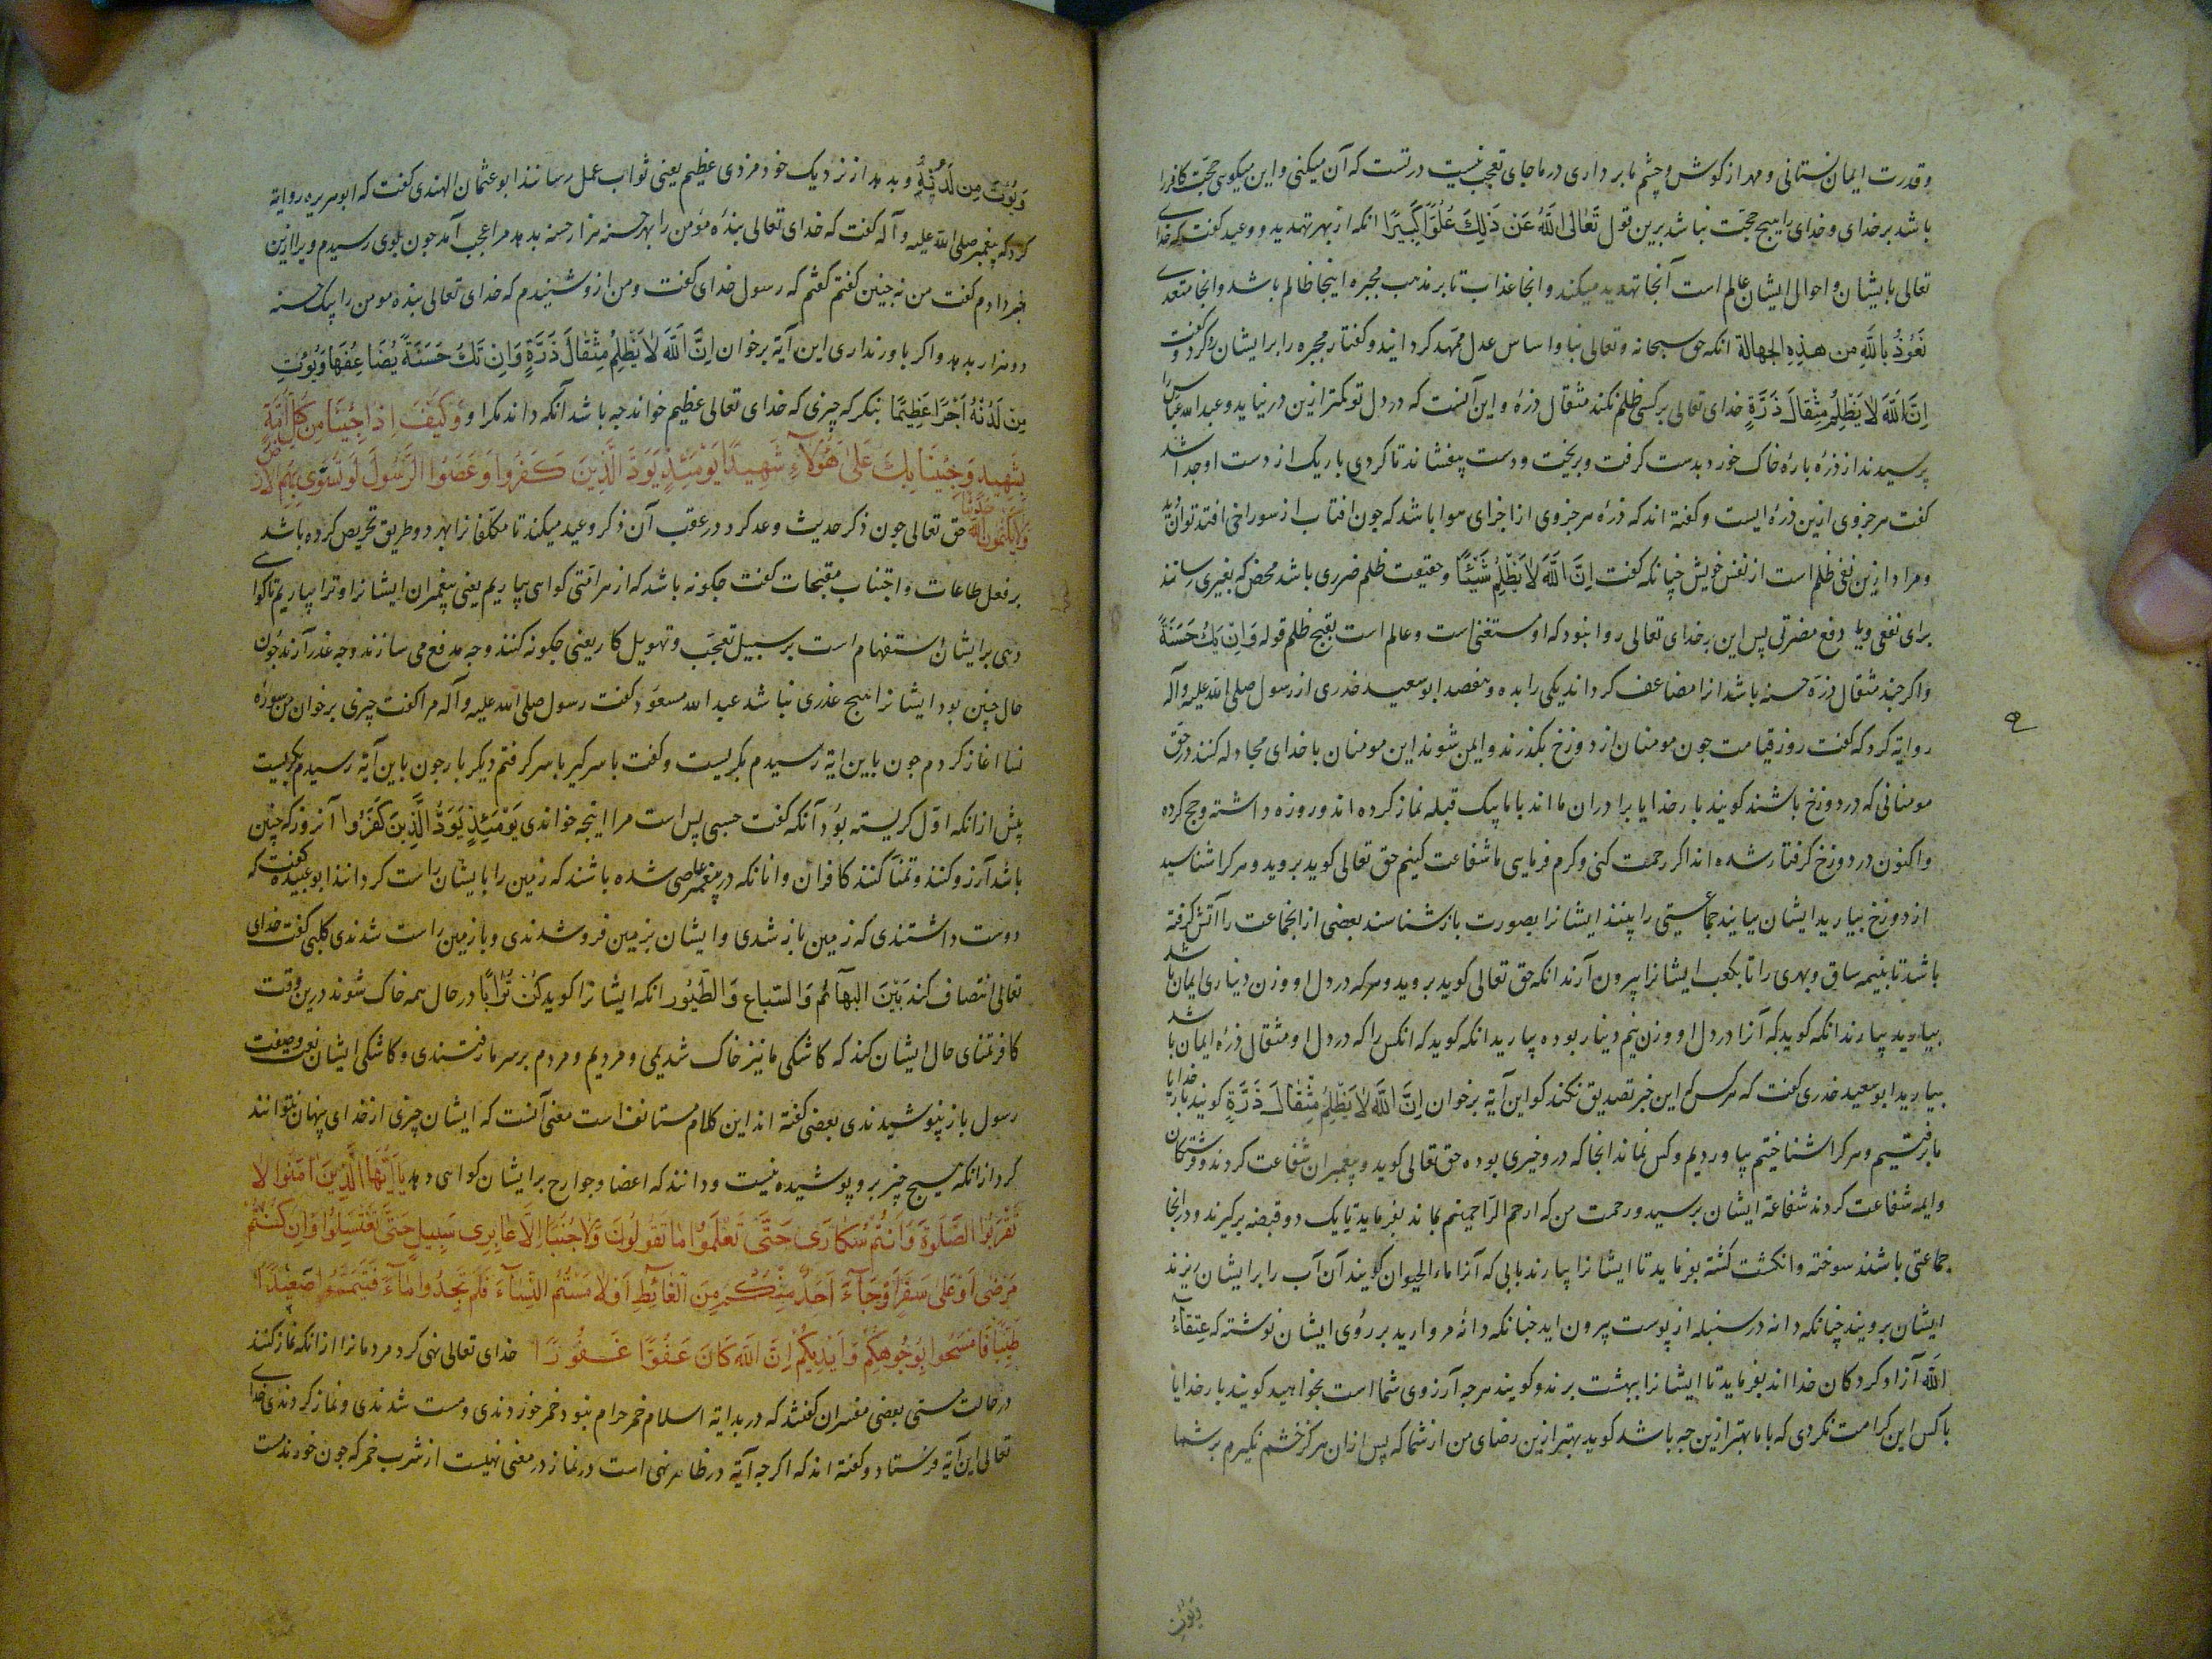 و قدرت ایمان نستانی و مهر از کوش و چشم ما برداری در ما جای تعجب نیست درتست که آن میکنی و این میکوی حجّت کافر را
باشد بر خدای و خدای را هیچ حجّت نباشد برین قول تَعَالَی اللَّهُ عَن ذَلِكَ عُلُوًّا كَبِيرًا انکه از بهر تهدید و وعید کفت که خدای
تعالی بایشان و احوال ایشان عالم است آنجا تهدید میکند و انجا عذاب تا بر مذهب مجبره اینجا ظالم باشد و انجا متعدی
نَعُوذُ بِاللَّهِ مِن هذِهِ الجهالة انکه حق سبحانه و تعالی بنا و اساس عدل ممهّد کردانید و کفتار مجبره را بر ایشان رد کرد و کفت
اِنَّ اللَّهَ لَا يَظْلِمُ مِثْقَالَ ذَرَّةٍ خدای تعالی بر کسی ظلم نکند مثقال ذرّه و این آنست که در دل تو کمتر ازین در نیاید و عبدالله عباس را
پرسیدند از ذرّه پارهٔ خاک خورد بدست کرفت و بریخت و دست بیفشاند تا کردی باریک از دست او جدا شد
کفت هر جزوی ازین ذرّه ایست و کفته اند که ذرّه هر جزوی از اجزای هوا باشد که جون افتاب از سوراخی افتد توان دید
و مراد ازین نفی ظلم است از نفس خویش چنانکه کفت اِنَّ اللَّهَ لَا يَظْلِمُ شَيْئًا و حقیقت ظلم ضرری باشد محض که بغیری رسانند
برای نفعی و یا دفع مضرتی پس این بر خدای تعالی روا نبود که او مستغنی است و عالم است بقبح ظلم قوله وَاِن تَكُ حَسَنَةً
و اکر چند مثقال ذرّه حسنه باشد انرا مضاعف کرداند یکی را بده و بهفصد ابو سعید خدری از رسول صلی الله علیه و آله
روایة کرد که کفت روز قیامت جون مومنان از دوزخ بکذرند و ایمن شوند این مومنان با خدای مجادله کنند در حق
مومنانی که در دوزخ باشند کویند بار خدایا برادران ما اند با ما بیک قبله نماز کرده اند و روزه داشته و حج کرده
و اکنون در دوزخ کرفتار شده اند اکر رحمت کنی و کرم فرمایی ما شفاعت کنیم حق تعالی کوید بروید و هر کرا شناسید
از دوزخ بیارید ایشان بیایند جماعتی را بینند ایشانرا بصورت باز شناسند بعضی از انجماعت را آتش کرفته
باشد تا بنیمه ساق و بهری را تا بکعب ایشانرا بیرون آرند انکه حق تعالی کوید بروید و هر که در دل او وزن دیناری ایمان باشد
بیارید بیارند انکه کوید که آنرا در دل او وزن نیم دینار بوده بیارید انکه کوید که انکس را که در دل او مثقال ذرّه ایمان باشد
بیارید ابو سعید خدری کفت که هر کس که این خبر تصدیق نکند کو این آیة برخوان اِنَّ اللَّهَ لَا يَظْلِمُ مِثْقَالَ ذَرَّةٍ کویند بار خدایا
ما رفتیم و هر کرا شناختیم بیاوردیم و کس نماند انجا که درو خیری بوده حق تعالی کوید و پیغمبران شفاعت کردند و فرشتکان
و ایمه شفاعت کردند شفاعة ایشان برسید و رحمت من که ارحم الرّاحمینم بماند بفرماید تا یک دو قبضه برکیرند و در انجا
جماعتی باشند سوخته و انکشت کشته بفرماید تا ایشانرا بیارند بابی که آنرا ماء الحیوان کویند آن آب را بر ایشان ریزند
ایشان برویند چنانکه دانه در سنبله از پوست بیرون اید چنانکه دانهٔ مروارید بر روی ایشان نوشته که عتقاءُ
اللَّه آزاد کردکان خدا اند بفرماید تا ایشانرا ببهشت برند و کویند هرچه آرزوی شما است بخواهید کویند بار خدایا
با کس این کرامت نکردی که با ما بهتر ازین چه باشد کوید بهتر ازین رضای من از شما که پس از ان هرکز خشم نکیرم بر شما
وَيُؤْتِ
وَيُؤْتِ مِن لَّدُنْهُ و بدهد از نزدیک خود مزدی عظیم یعنی ثواب عمل رسانند ابو عثمان الهندی کفت که ابو هریره روایة
کرد که پیغمبر صلی الله علیه و آله کفت که خدای تعالی بندهٔ مؤمن را بهر حسنه هزار حسنه بدهد مرا عجب آمد جون بوی رسیدم ویرا ازین
خبر دادم کفت من نه جنین کفتم کفتم که رسول خدای کفت و من ازو شنیدم که خدای تعالی بنده مومن را بیک حسنه
دو هزار بدهد و اکر باور نداری این آیة برخوان اِنَّ اللَّهَ لَا يَظْلِمُ مِثْقَالَ ذَرَّةٍ وَاِن تَكُ حَسَنَةً يُضَاعِفْهَا وَيُؤْتِ
مِن لَدُنْهُ اَجْرًا عَظِيمًا بنکر که چیزی که خدای تعالی عظیم خواند چه باشد آنکه داند مکر او فَكَيْفَ اِذَا جِئْنَا مِن كُلِّ اُمَّةٍ
بِشَهِيدٍ وَجِئْنَا بِكَ عَلَى هَؤُلَاءِ شَهِيدًا يَوْمَئِذٍ يَوَدُّ الَّذِينَ كَفَرُوا وَعَصَوُا الرَّسُولَ لَوْ تُسَوَّى بِهِمُ الْاَرْضُ
وَلَا يَكْتُمُونَ اللَّهَ حَدِيثًا حق تعالی جون ذکر حدیث وعد کرد در عقب آن ذکر وعید میکند تا مکلّفانرا بهر دو طریق تحریص کرده باشد
بر فعل طاعات و اجتناب مقبحات کفت چکونه باشد که از هر امّتی کواهی بیاریم یعنی پیغمبران ایشانرا و ترا بیاریم تا کوا
دهی بر ایشان استفهام است بر سبیل تعجّب و تهویل کار یعنی چکونه کنند و چه مدفع می سازند و چه عذر آرند جون
حال چنین بود ایشانرا هیچ عذری نباشد عبد الله مسعود کفت رسول صلی الله علیه و آله مرا کفت چیزی برخوان من سورهٔ
نسا اغاز کردم جون باین ایة رسیدم بکریست و کفت با سر کیر با سر کرفتم دیکر بار جون باین آیة رسیدم بکریست
بیش از انکه اوّل کریسته بود آنکه کفت حسبی پس است مرا اینچه خواندی يَوْمَئِذٍ يَوَدُّ الَّذِينَ كَفَرُوا آنروز که چنین
باشد آرزو کنند و تمنّا کنند کافران و انانکه در پیغمبر عاصی شده باشند که زمین را بایشان راست کردانند ابو عبیده کفت که
دوست داشتندی که زمین باز شدی و ایشان بزمین فرو شدندی و با زمین راست شدندی کلبی کفت خدای
تعالی انتصاف کند بَيْنَ البهآئم وَالسّباع وَالطّيور انکه ایشانرا کوید كُنْ تُرَابًا در حال همه خاک شوند درین وقت
کافر تمنای حال ایشان کند که کاشکی ما نیز خاک شدیمی و مردیم و مردم بر سر ما رفتندی و کاشکی ایشان نعت و صفت
رسول باز نپوشیدندی بعضی کفته اند این کلام مستانف است معنی آنست که ایشان چیزی از خدای پنهان نتوانند
کرد از انکه هیچ چیز برو پوشیده نیست و دانند که اعضا و جوارح بر ایشان کواهی دهد يَا اَيُّهَا الَّذِينَ اٰمَنُوا لَا
تَقْرَبُوا الصَّلٰوةَ وَاَنْتُمْ سُكَارٰى حَتّٰى تَعْلَمُوا مَا تَقُولُونَ وَلَا جُنُبًا اِلَّا عَابِرِي سَبِيلٍ حَتّٰى تَغْتَسِلُوا وَاِن كُنْتُمْ
مَرْضٰى اَوْ عَلٰى سَفَرٍ اَوْ جَاءَ اَحَدٌ مِنْكُمْ مِنَ الْغَائِطِ اَوْ لَامَسْتُمُ النِّسَاءَ فَلَمْ تَجِدُوا مَاءً فَتَيَمَّمُوا صَعِيدًا
طَيِّبًا فَامْسَحُوا بِوُجُوهِكُمْ وَاَيْدِيكُمْ اِنَّ اللَّهَ كَانَ عَفُوًّا غَفُورًا خدای تعالی نهی کرد مردمانرا از انکه نماز کنند
در حالت مستی بعضی مفسران کفتند که در بدایة اسلام خمر حرام نبود خمر خوردندی و مست شدندی و نماز کردندی خدای
تعالی این آیة فرستاد و کفته اند که اکرچه آیة در ظاهر نهی است در نماز در معنی نهیست از شرب خمر که جون خوردند مست